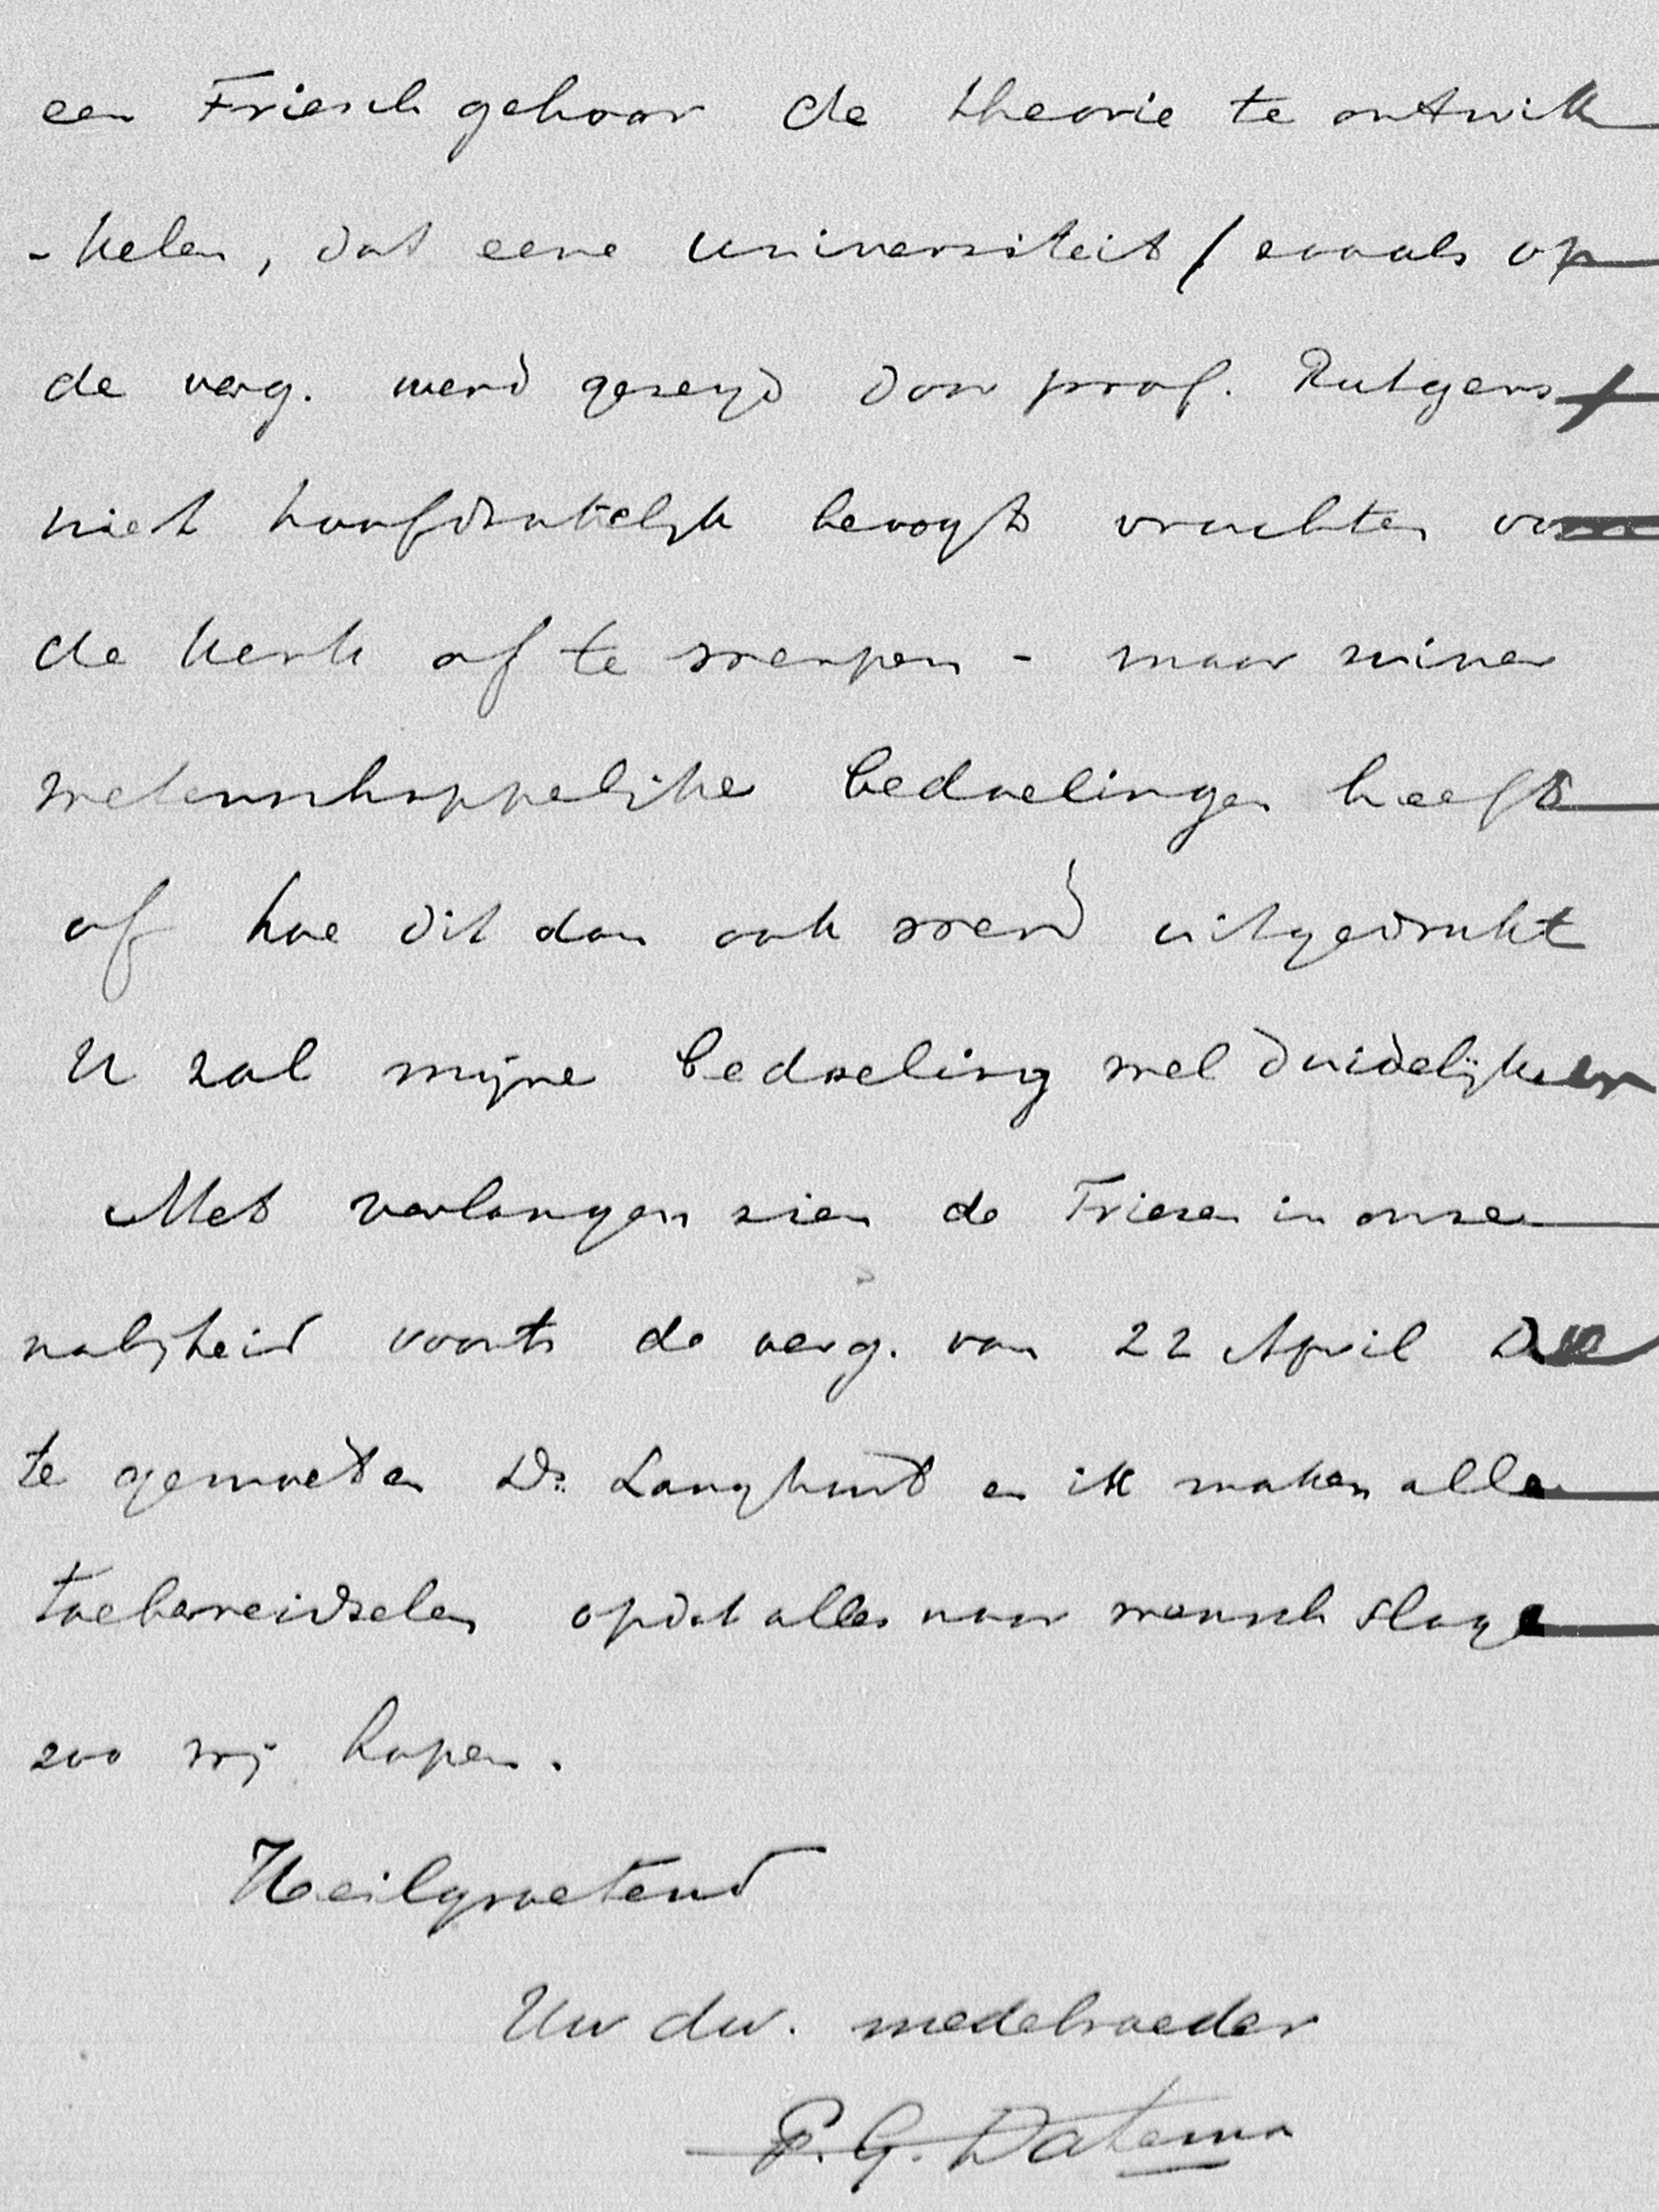 een Friesch gehoor de theorie te ontwik
-kelen, dat eene universiteit / zooals op
de verg. werd gezegd door prof. Rutgers /
niet hoofdzakelijk beoogt vruchten voor
de kerk af te werpen - maar zuiver
wetenschappelijke bedoelingen heeft
of hoe dit dan ook werd uitgedrukt
U zal mijne bedoeling wel duidelijk
Met verlangen zien de Friezen in onze
nabijheid voorts de verg. van 22 April
te gemoet en Ds. Langhout en ik maken alle
toebereidselen opdat alles naar wensch slage
zoo wij hopen.
Heilgroetend
Uw dw. medebroeder
P. G. Datema